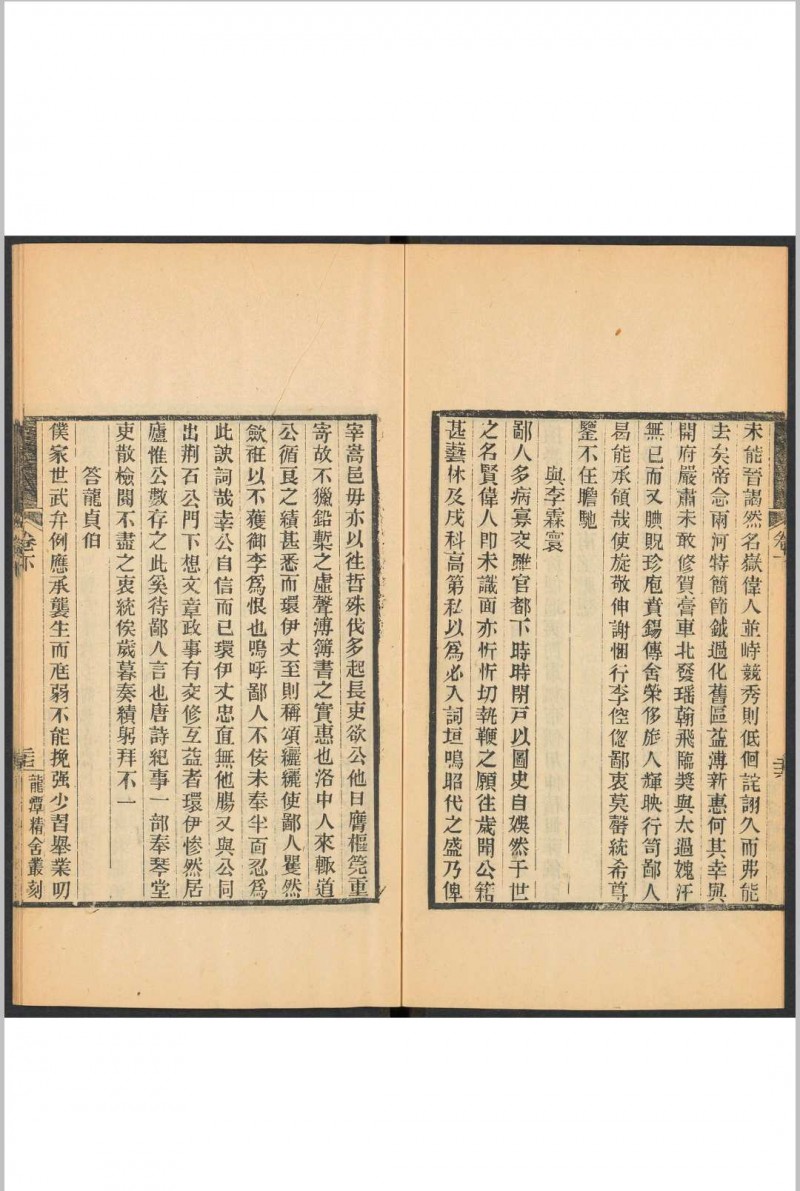 未能晉謁然名嶽偉人並峙競秀則低徊詫詡久而弗能
去矣帝念兩河特簡節鉞過化舊區益溥新惠何其幸與
開府嚴肅未敢修賀膏車北發瑤翰飛臨奬與太過媿汗
無已而又腆貺珍庖賁錫傳舍榮侈旅人輝映行笥鄙人
曷能承領哉使旋敬伸謝悃行李倥偬鄙衷莫罄統希尊
鑒不任瞻馳
與李霖寰
鄙人多病寡交雖官都下時時閉戸以圖史自娛然于世
之名賢偉人即未識面亦忻忻切執鞭之願往歲聞公籍
甚藝林及戌科高第私以爲必入詞垣鳴昭代之盛乃俾
卷下
三六
宰嵩邑毋亦以往哲殊伐多起長吏欲公他日膺樞筦重
寄故不獵鉛槧之虛聲溥簿書之實惠也洛中人來輙道
公循良之績甚悉而環伊丈至則稱頌纚纚使鄙人矍然
歛衽以不獲御李爲恨也嗚呼鄙人不佞未奉半面忍爲
此諛詞哉幸公自信而已環伊丈忠直無他腸又與公同
出荆石公門下想文章政事有交修互益者環伊慘然居
廬惟公數存之此奚待鄙人言也唐詩紀事一部奉琴堂
吏散檢閱不盡之衷統俟歲暮奏績躬拜不一
答龍貞伯
僕家世武弁例應承襲生而尫弱不能挽强少習舉業叨
卷下
三七
龍潭精舍叢刻